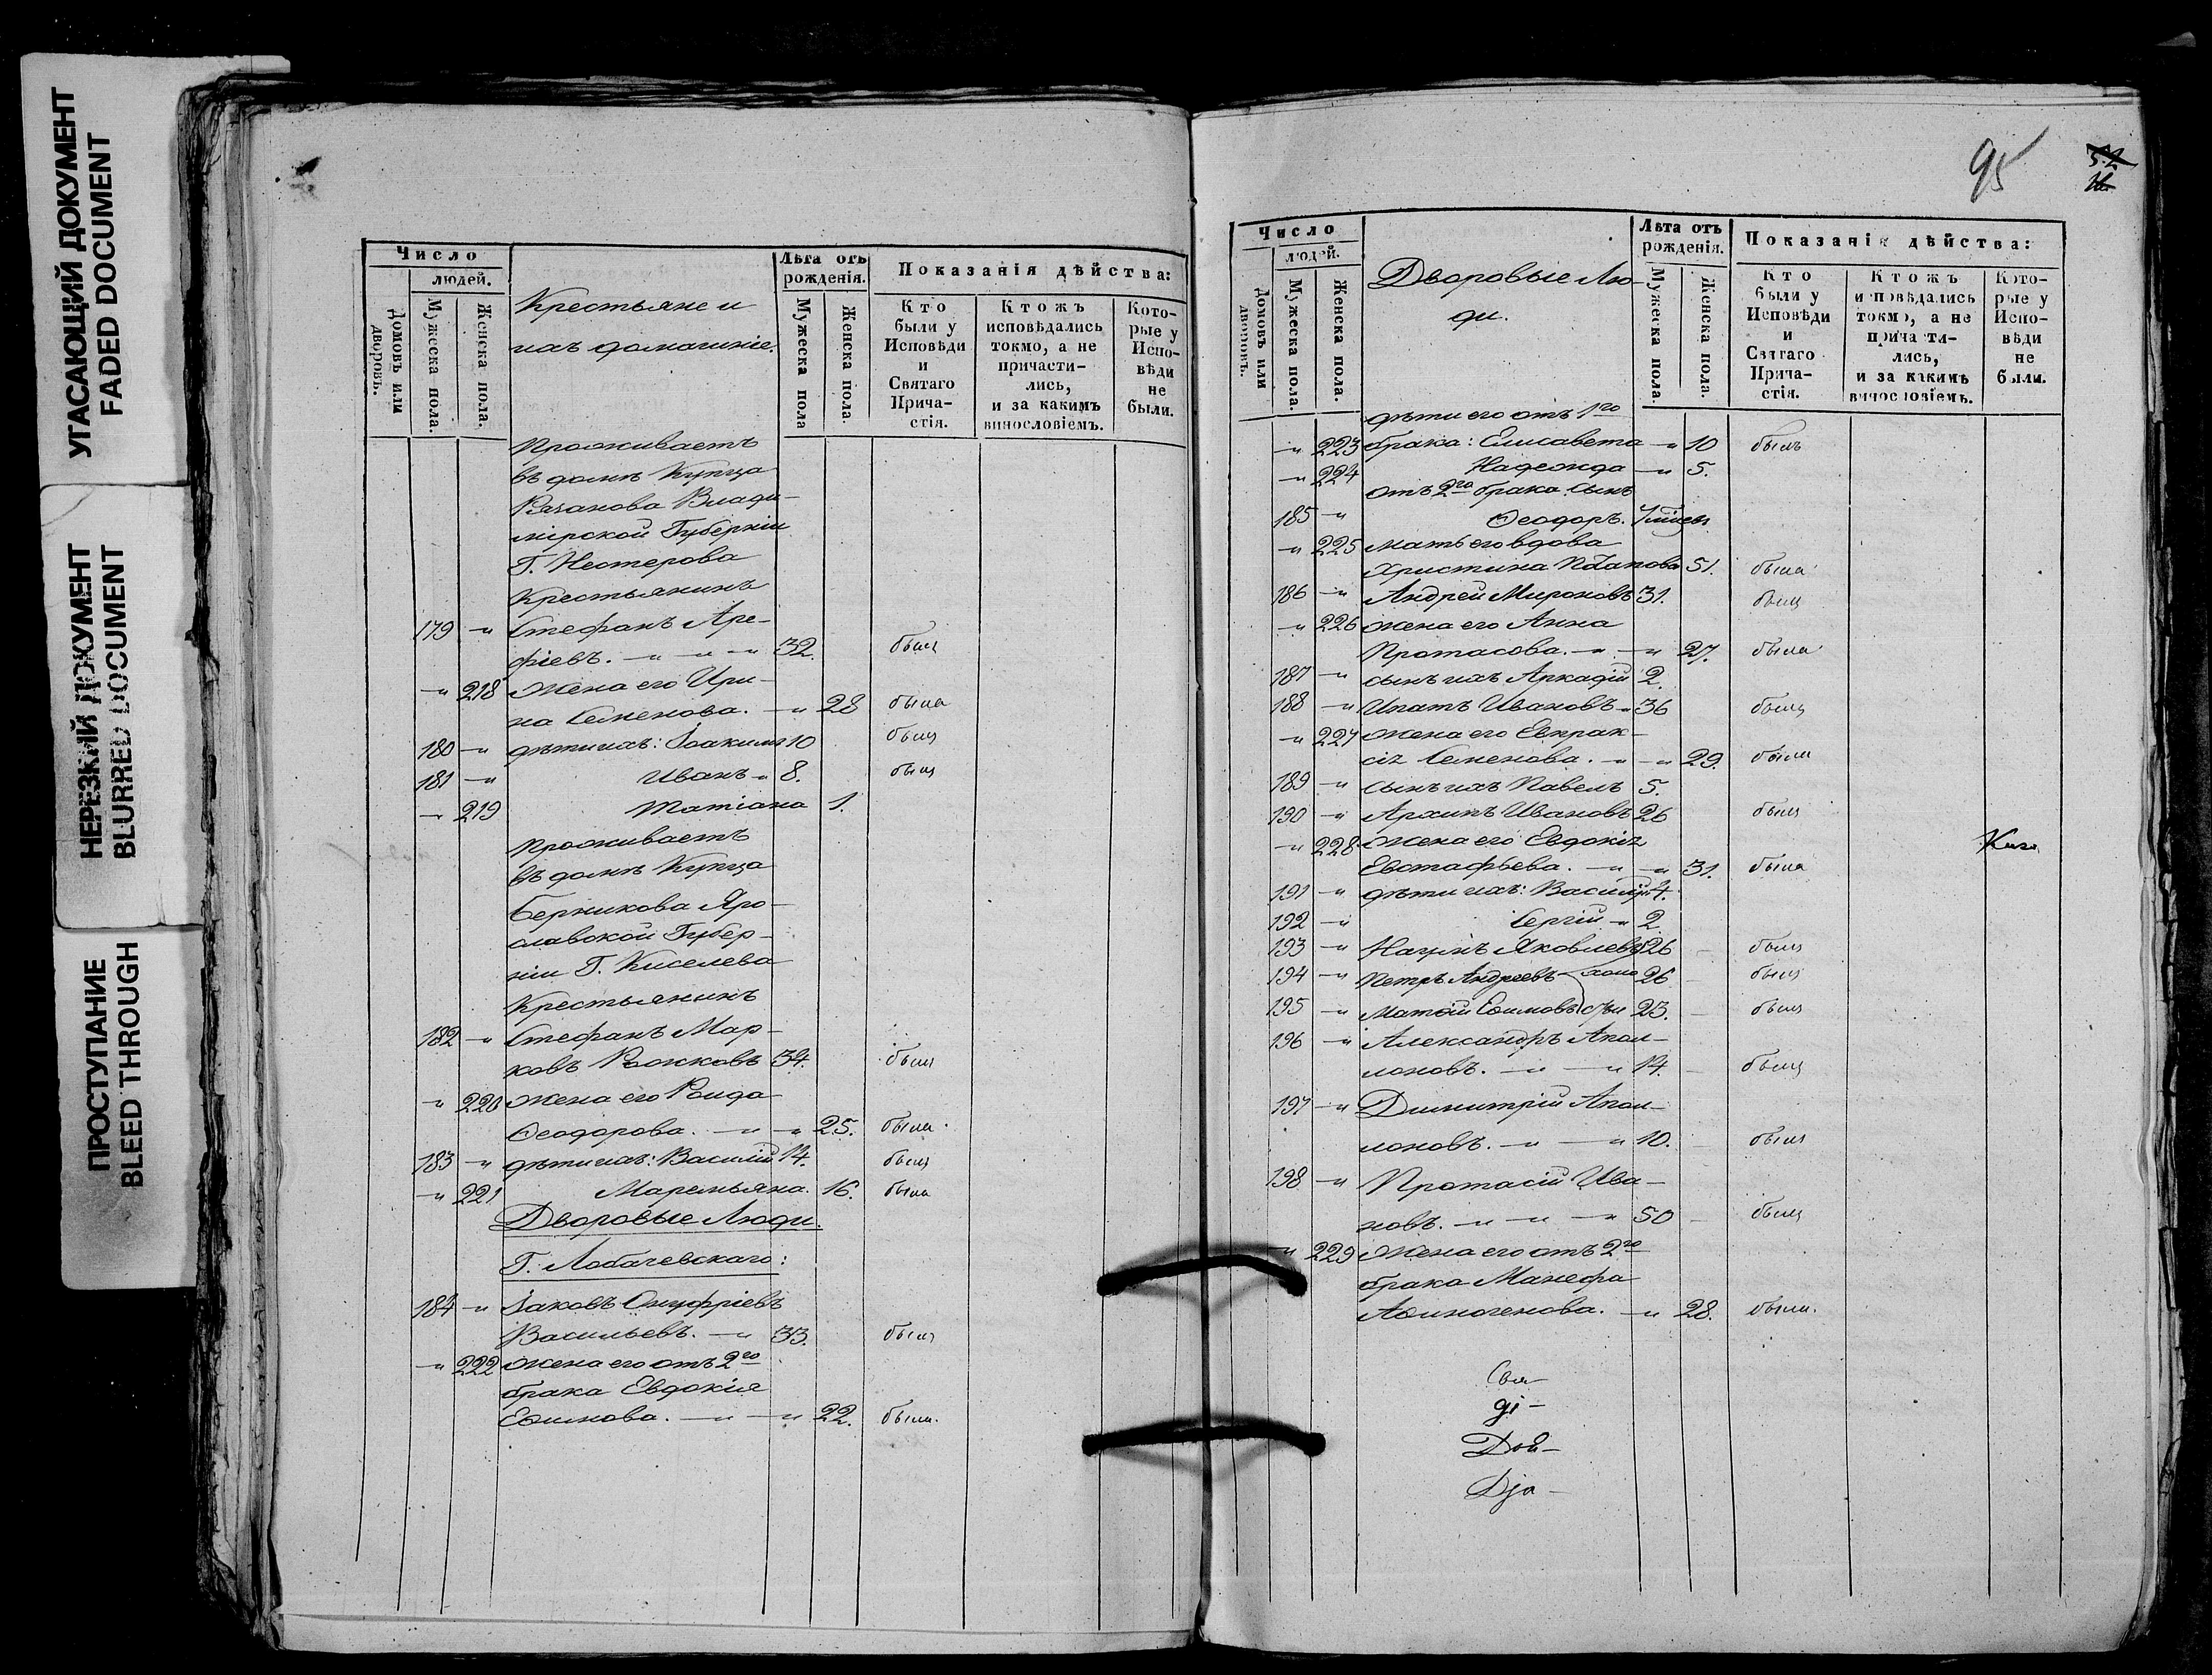 УГАСАЮЩИЙ ДОКУМЕНТ
FADED DOCUMENT
НЕРЕЗКИЙ ДОКУМЕНТ
BLURRED DOCUMENT
ПРОСТУПАНИЕ
BLEED THROUGH
Число
людей.
Домовъ или дворовъ.
Мужеска пола.
Женска пола.
Крестьяне и
ихъ домашніе.
Лѣта отъ рожденія.
Мужеска пола
Женска пола.
Показанія дѣйства:
Кто были у Исповѣди и Святаго Причастія.
Ктожъ исповѣдались токмо, а не причастились, и за какимъ винословіемъ.
Которые у Исповѣди не были.
Проживаетъ
въ домѣ Купца
Рязанова Влади-
мірской Губерніи
Г. Нестерова
Крестьянинъ
179 -"- Стефанъ Аре-
фіевъ. -"- -"- 32. былъ
-"- 218 жена его Ири-
на Семенова. -"- 28 была
180 -"- дѣти ихъ: Іоакимъ 10 былъ
181 -"- Иванъ -"- 8. былъ
-"- 219 Татіана 1.
Проживаетъ
въ домѣ Купца
Берникова Яро-
славской Губер-
ніи Г. Киселева
Крестьянинъ
182 -"- Стефанъ Мар-
ковъ Рожковъ 34. былъ
-"- 220 жена его Раида
Ѳеодорова. -"- -"- 25. была
183 -"- дѣти ихъ: Василій 14. былъ
-"- 221 Маремьяна. 16. была
Дворовые Люди.
Г. Лобачевскаго:
184 -"- Іаковъ Онуфріевъ
Васильевъ. -"- 33. былъ
-"- 222 жена его отъ 2го
брака Евдокія
Еѳимова. -"- -"- 22. была.
95
52
Число
людей.
Домовъ или дворовъ.
Мужеска пола.
Женска пола.
Дворовые Лю-
ди.
Лѣта отъ рожденія.
Мужеска пола.
Женска пола.
Показанія дѣйства:
Кто были у Исповѣди и Святаго Причастія.
Ктожъ исповѣдались токмо, а не причастились, и за какимъ винословіемъ.
Которые у Исповѣди не были.
дѣти его отъ 1го
-"- 223 брака: Елисавета -"- 10 былъ
-"- 224 Надежда -"- 5.
отъ 2го брака сынъ
185 -"- Ѳеодоръ.
-"- 225 мать его вдова
Христина 51. была
186 -"- Андрей Мироновъ 31. былъ
-"- 226 жена его Анна
Протасова. -"- -"- 27. была
187 -"- сынъ ихъ Аркадій 2.
188 -"- Ипатъ Ивановъ -"- 36 былъ
-"- 227 жена его Евпрак-
сія Семенова. -"- -"- 29. была
189 -"- сынъ ихъ Павелъ 5.
190 -"- Архипъ Ивановъ 26 былъ
-"- 228 жена его Евдокія
Евстафьева. -"- -"- 31. была
191 -"- дѣти ихъ: Василій 4.
192 -"- Сергій -"- 2
193 -"- Яковлевъ 26 былъ
194 -"- Петръ Андреевъ холо 26 былъ
195 -"- Матѳій Еѳимовъ сты 23. былъ
196 -"- Александръ Апол-
лоновъ. -"- -"- 14. былъ
197 -"- Димитрій Апол-
лоновъ. -"- -"- 10. былъ
198 -"- Протасій Ива-
новъ. -"- -"- -"- 50 былъ
-"- 229 жена его отъ 2го
брака Манефа
Аѳиногенова. -"- 28. была.
Свя-
ді-